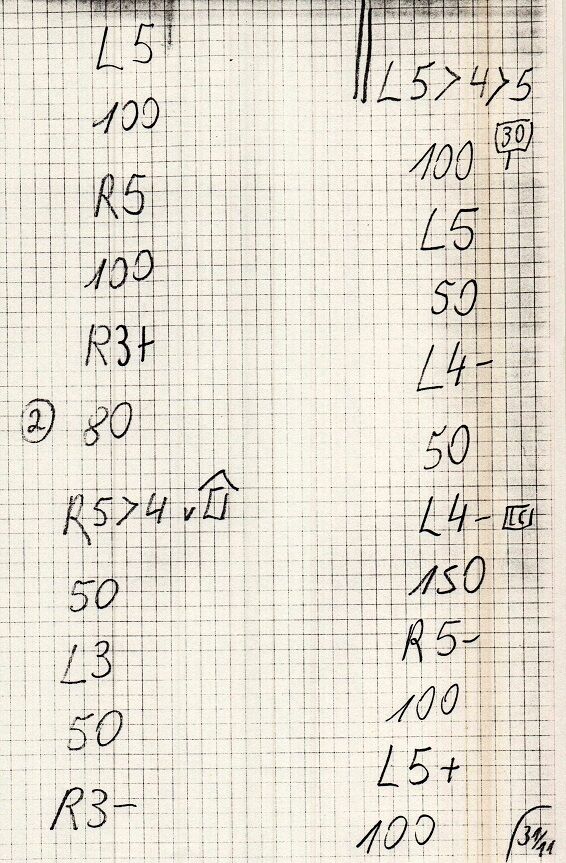 L5
100
R5
100
R3+
② 80
R5>4 v
50
L3
50
R3-
L5>4>5
100 30
L5
50
L4-
50
L4-
150
R5-
100
L5+
100